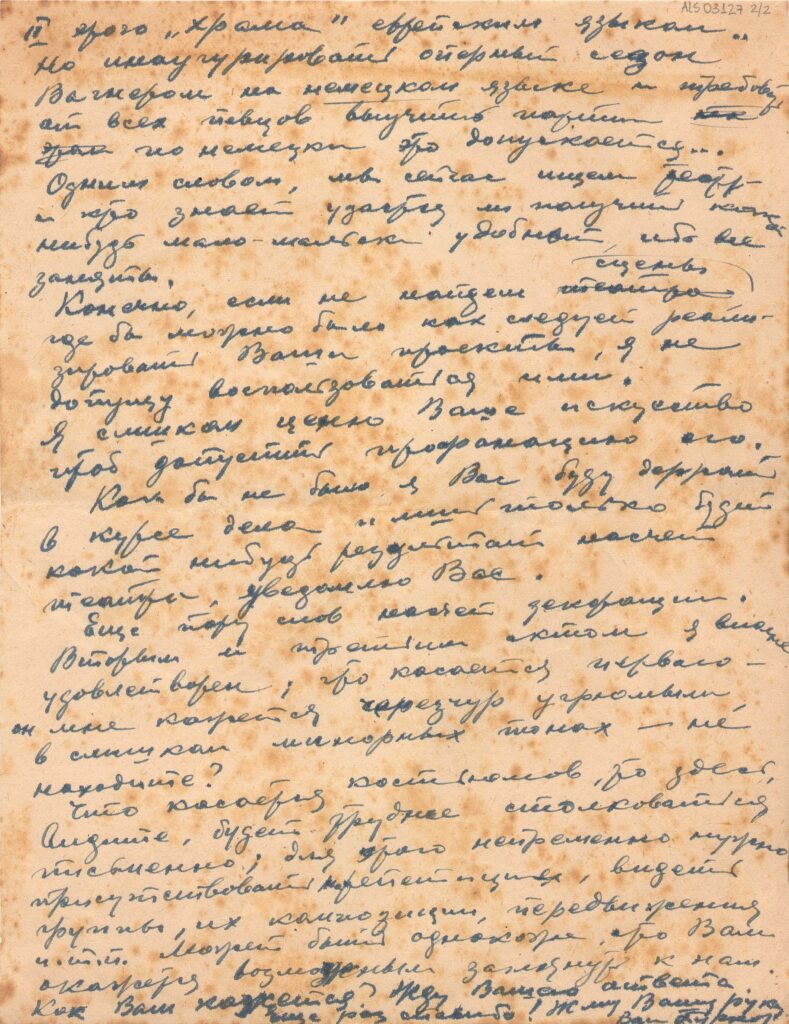 ALS 03127 2/2
этого „храма" еврейским языком..
Но инаугурировать оперный сезон
Вагнером на немецком языке и требовать
от всех певцов выучить партии
по немецки это допускается...
Одним словом, мы сейчас ищем театр
и кто знает удастся ли получить какой
нибудь мало-мальски удобный ибо все
заняты.
сцены
Конечно, если не найдем театра
где бы можно было как следует реали-
зировать Ваши проекты, я не
допущу воспользоваться ими.
Я слишком ценю Ваше искусство
чтоб допустить профанацию его.
Как бы не было я Вас буду держать
в курсе дела и лишь только будет
какой нибудь результат насчет
театра, уведомлю Вас.
Еще пару слов насчет декорации.
Вторым и третьим актом я вполне
удовлетворен; что касается первого —
он мне кажется чересчур угрюмым,
в слишком минорных тонах — не
находите?
Что касается костюмов, то здесь,
видите, будет труднее столковаться
письменно; для этого непременно нужно
присутствовать репетициях, видеть
группы, их композиции, передвижения
и.т.п. Может быть однакоже, что Вам
окажется возможным заглянуть к нам.
Как Вам кажется? Жду Вашего ответа.
Еще раз спасибо! Жму Вашу руку
Ваш